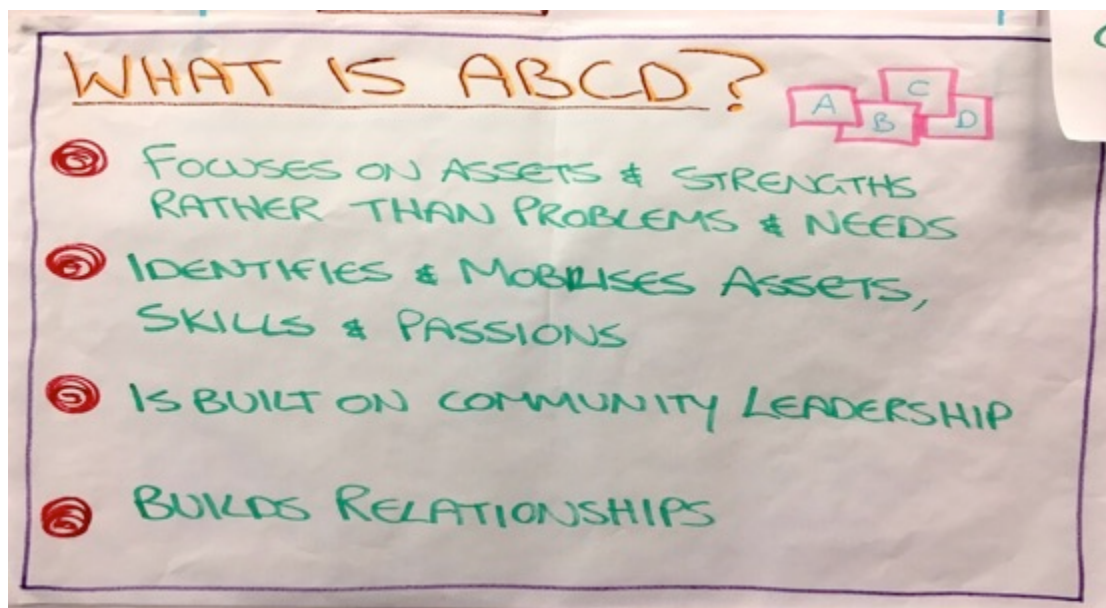 WHAT IS ABCD?
A B C D
FOCUSES ON ASSETS & STRENGTHS
RATHER THAN PROBLEMS & NEEDS
IDENTIFIES & MOBILISES ASSETS,
SKILLS & PASSIONS
IS BUILT ON COMMUNITY LEADERSHIP
BUILDS RELATIONSHIPS